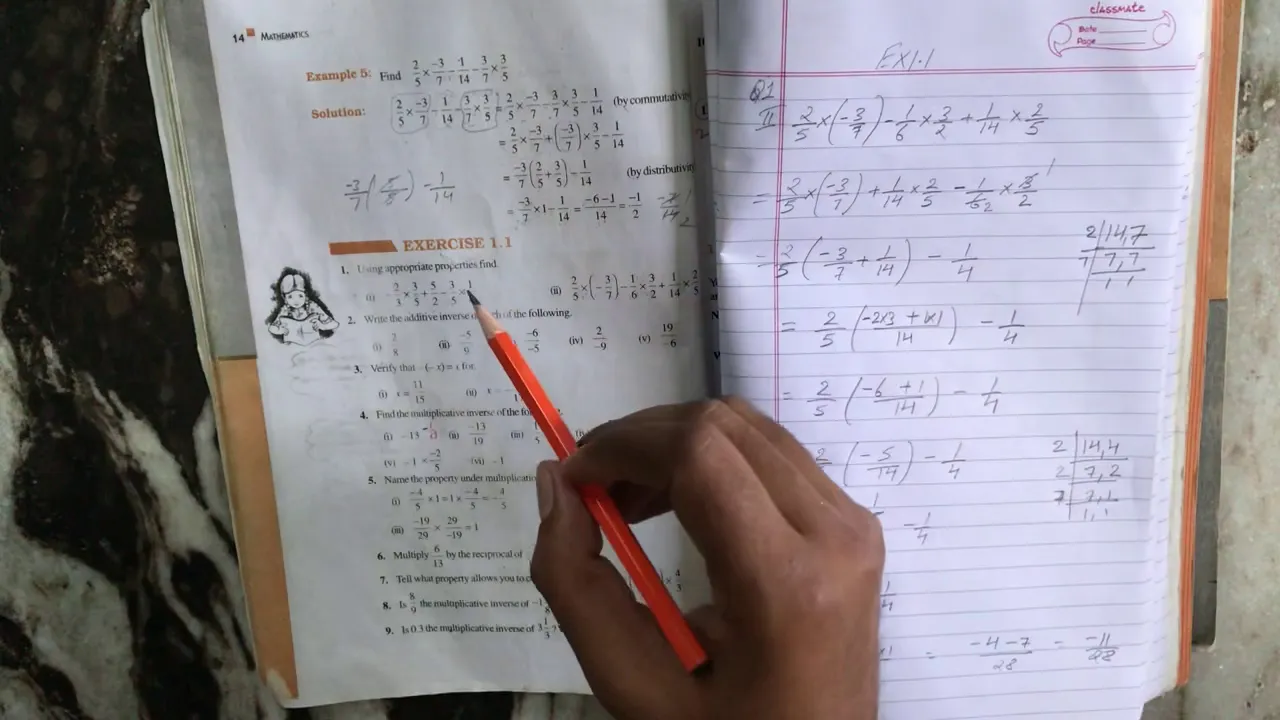 14 MATHEMATICS
Example 5: Find 2/5 × -3/7 - 1/14 - 3/7 × 3/5
Solution: 2/5 × -3/7 - 1/14 - 3/7 × 3/5 = 2/5 × -3/7 - 3/7 × 3/5 - 1/14 (by commutativity
= 2/5 × -3/7 + (-3/7) × 3/5 - 1/14
= -3/7 (2/5 + 3/5) - 1/14 (by distributivity
= -3/7 × 1 - 1/14 = -6-1/14 = -1/2
-3/7 ( ) - 1/14
EXERCISE 1.1
1. Using appropriate properties find.
(i) -2/3 × 3/5 + 5/2 - 3/5 × 1 (ii) 2/5 × (-3/7) - 1/6 × 3/2 + 1/14 × 2/5
2. Write the additive inverse of each of the following.
(i) 2/8 (ii) -5/9 -6/-5 (iv) 2/-9 (v) 19/-6
3. Verify that -(-x) = x for.
(i) x = 11/15 (ii) x = -
4. Find the multiplicative inverse of the
(i) -13 (ii) -13/19 (iii) 1/5
(v) -1 × -2/5 (vi) -1
5. Name the property under multiplication
(i) -4/5 × 1 = 1 × -4/5 = -4/5
(iii) -19/29 × 29/-19 = 1
6. Multiply 6/13 by the reciprocal of
7. Tell what property allows you to × 4/3
8. Is 8/9 the multiplicative inverse of -1 1/8
9. Is 0.3 the multiplicative inverse of 3 1/3?
classmate
Date
Page
EX 1.1
Q1
II 2/5 × (-3/7) - 1/6 × 3/2 + 1/14 × 2/5
= 2/5 × (-3/7) + 1/14 × 2/5 - 1/6 2 × 3/2 1
= 2/5 (-3/7 + 1/14) - 1/4
2 | 14,7
7 | 7,7
1 1
= 2/5 (-2×3 + 1×1/14) - 1/4
= 2/5 (-6 + 1/14) - 1/4
2/ (-5/14) - 1/4
2 | 14,4
2 | 7,2
7 | 7,1
1,1
- 1/4
1/4
= -4-7/28 = -11/28